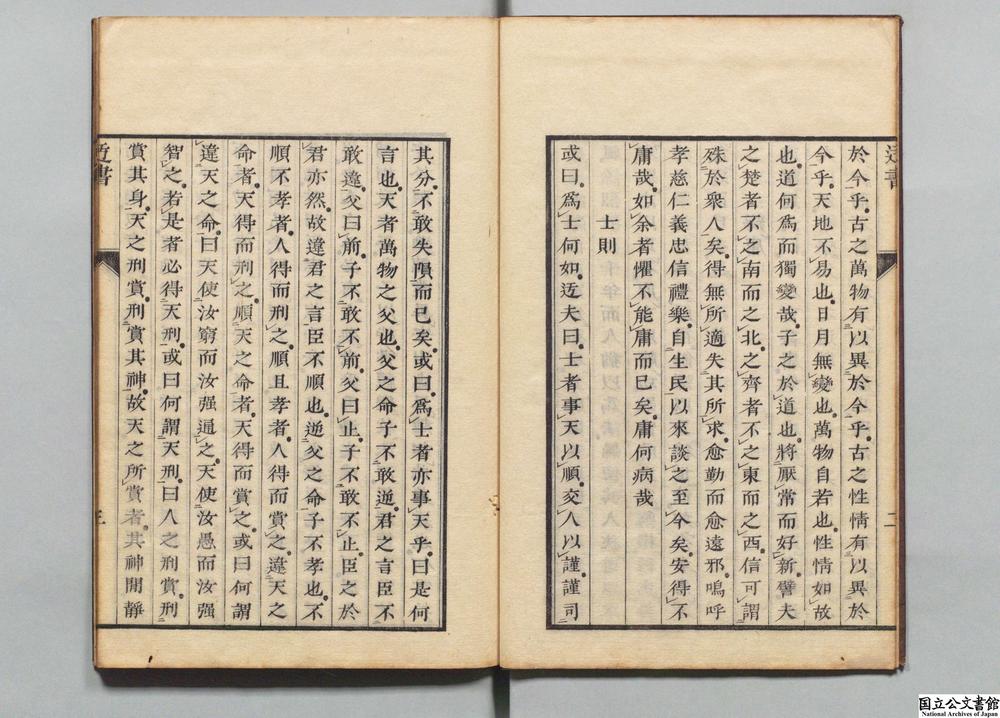 於今乎。古之萬物有以異於今乎。古之性情有以異於
今乎。天地不易也。日月無變也。萬物自若也。性情如故
也。道何爲而獨變哉。子之於道也。將厭常而好新。譬夫
之楚者不之南而之北。之齊者不之東而之西。信可謂
殊於衆人矣。得無所適失其所求。愈勤而愈遠邪。嗚呼
孝慈仁義忠信禮樂。自生民以來談之至今矣。安得不
庸哉。如余者懼不能庸而已矣。庸何病哉
士則
或曰。爲士何如。迂夫曰。士者事天以順。交人以謹。謹司
二
其分。不敢失隕而已矣。或曰。爲士者亦事天乎。曰是何
言也。天者萬物之父也。父之命子不敢逆。君之言臣不
敢違。父曰前。子不敢不前。父曰止。子不敢不止。臣之於
君亦然。故違君之言臣不順也。逆父之命子不孝也。不
順不孝者。人得而刑之。順且孝者。人得而賞之。違天之
命者。天得而刑之。順天之命者。天得而賞之。或曰何謂
違天之命。曰天使汝窮而汝强通之。天使汝愚而汝强
智之。若是者必得天刑。或曰何謂天刑。曰人之刑賞。刑
賞其身。天之刑賞。刑賞其神。故天之所賞者。其神閒靜
迂書
三
国立公文書館
National Archives of Japan